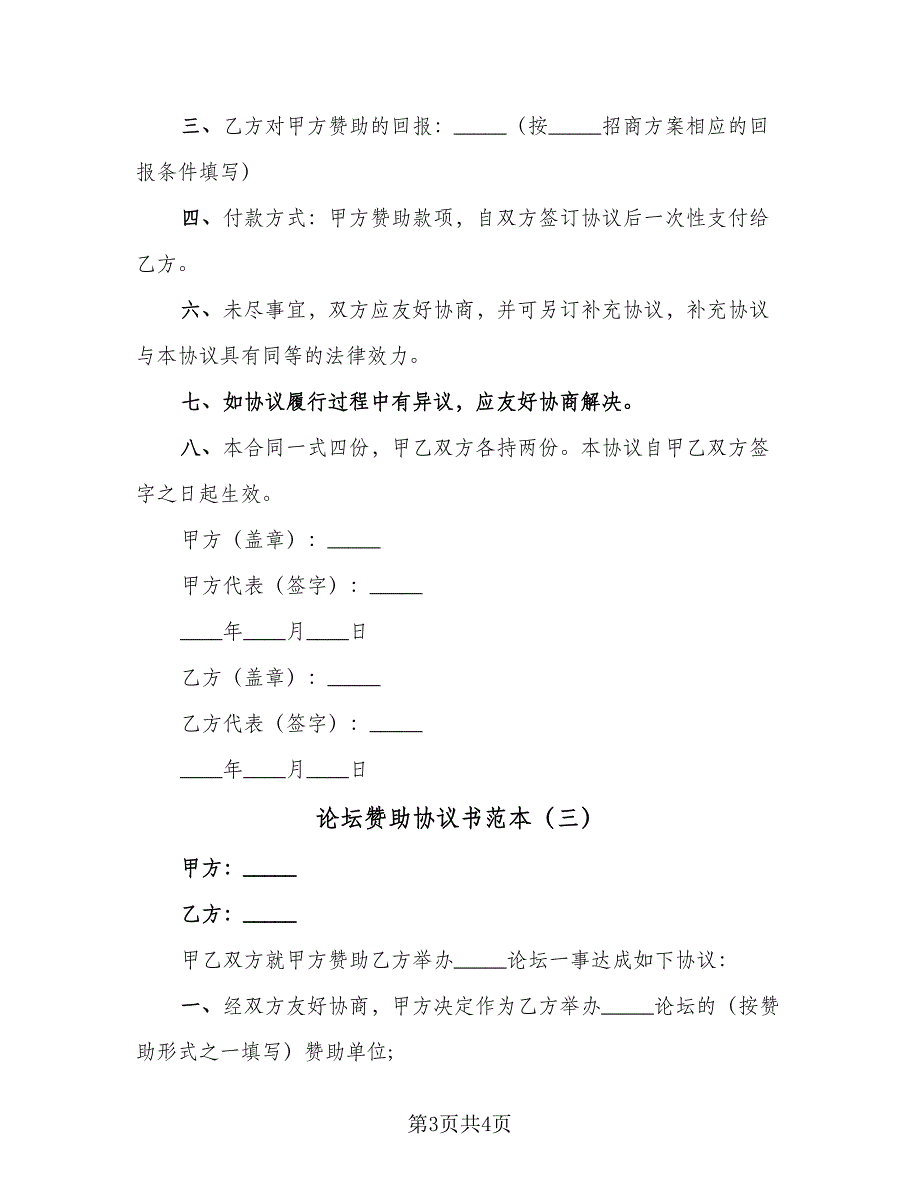 三、乙方对甲方赞助的回报：_____（按_____招商方案相应的回
报条件填写）
四、付款方式：甲方赞助款项，自双方签订协议后一次性支付给
乙方。
六、未尽事宜，双方应友好协商，并可另订补充协议，补充协议
与本协议具有同等的法律效力。
七、如协议履行过程中有异议，应友好协商解决。
八、本合同一式四份，甲乙双方各持两份。本协议自甲乙双方签
字之日起生效。
甲方（盖章）：_____
甲方代表（签字）：_____
____年____月____日
乙方（盖章）：_____
乙方代表（签字）：_____
____年____月____日
论坛赞助协议书范本（三）
甲方：_____
乙方：_____
甲乙双方就甲方赞助乙方举办_____论坛一事达成如下协议：
一、经双方友好协商，甲方决定作为乙方举办_____论坛的（按赞
助形式之一填写）赞助单位；
第3页共4页